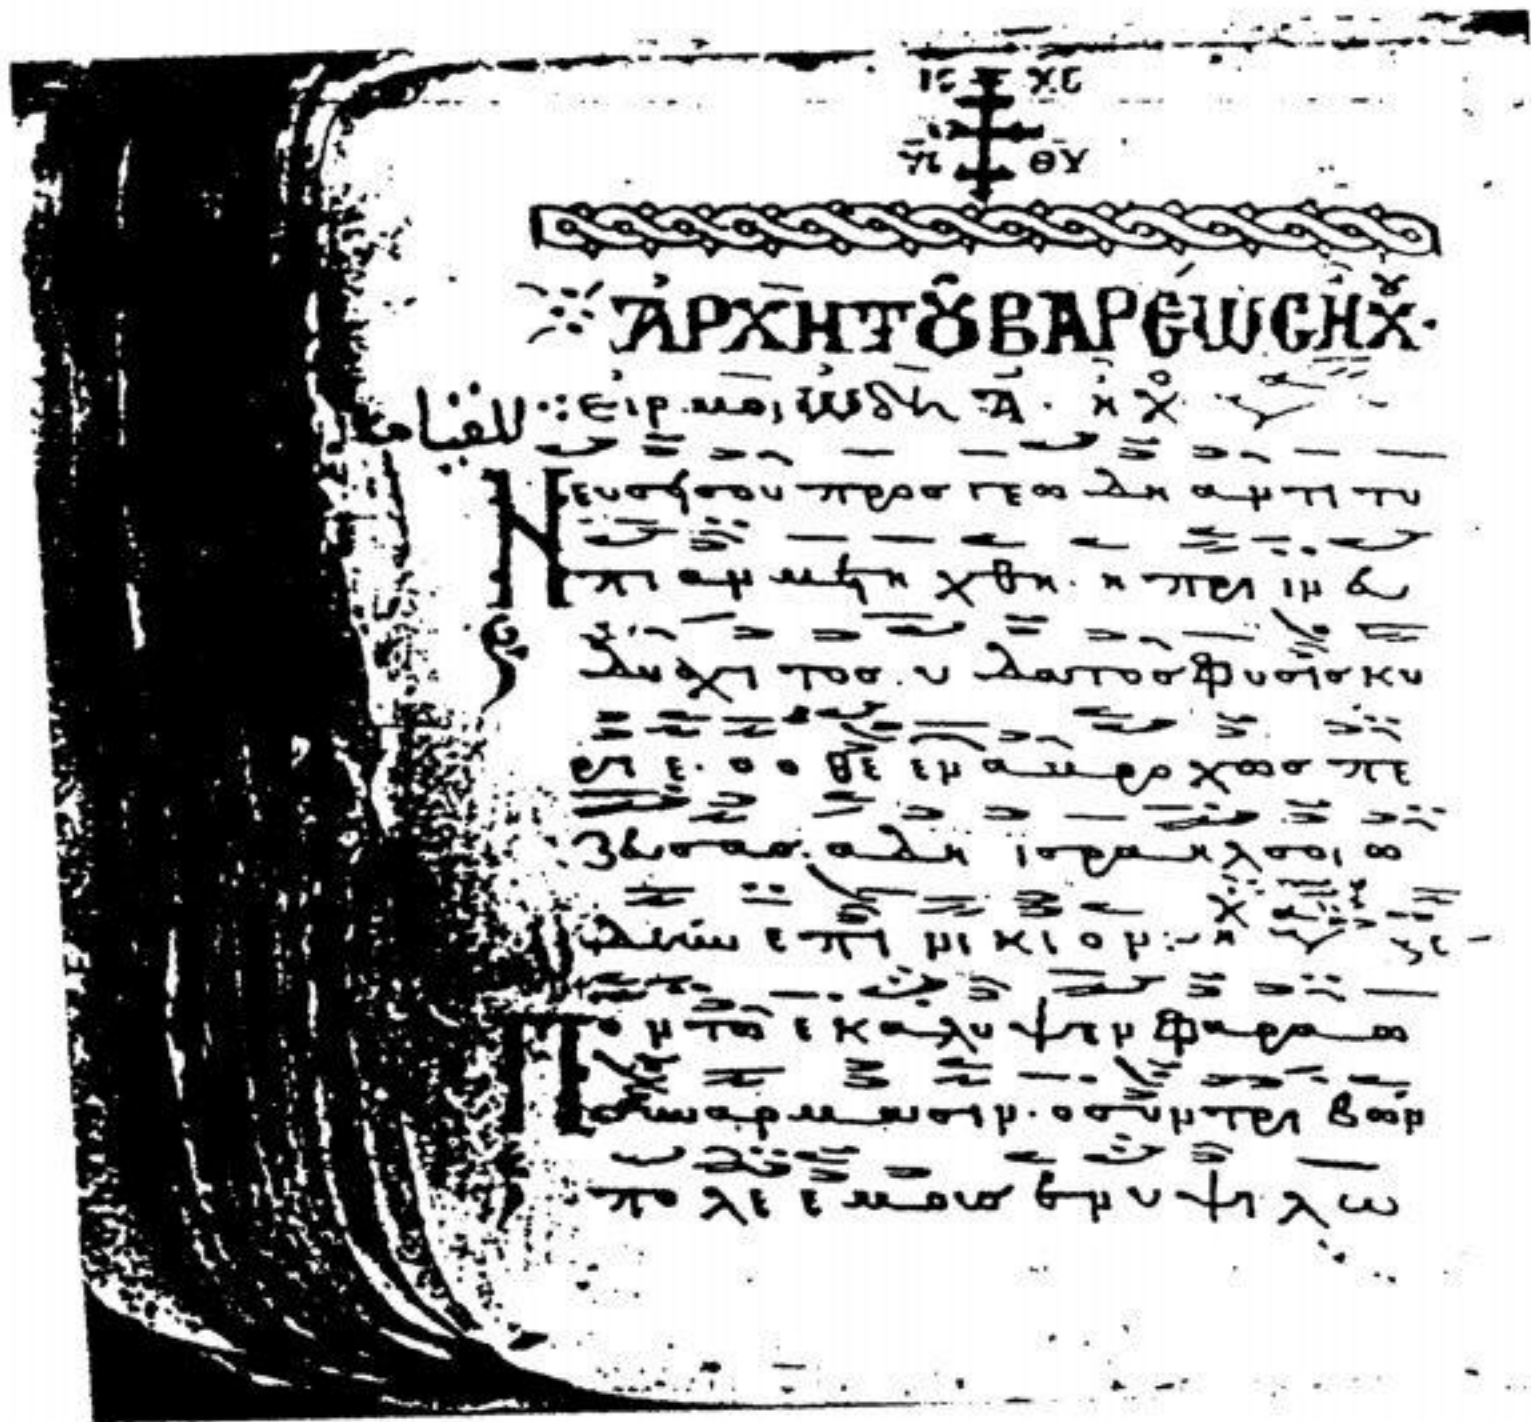 ΙC ΧC
ΥC ΘΥ
ἈΡΧῊ ΤΟΥ ΒΑΡΈΩC ΗΧΟΥ·
للقيامه
:εἱρμοι, ὠδὴ Α· ηχο
Νευσησου προσ γεωδη αντιτυ
πιαν ελυθη. η πριν ευ
διαχυτοσ. υδατοσ φυσισ κυ
ριε· οοθεν αμαβροχωσ πε
ζευσασ. αδη ισραηλ σοι ω
επινικιον:
Ποντω εκαλυψεν φαραω
συν αρμασιν. ο συντριβων
πολεεμουσ εν υψιλω